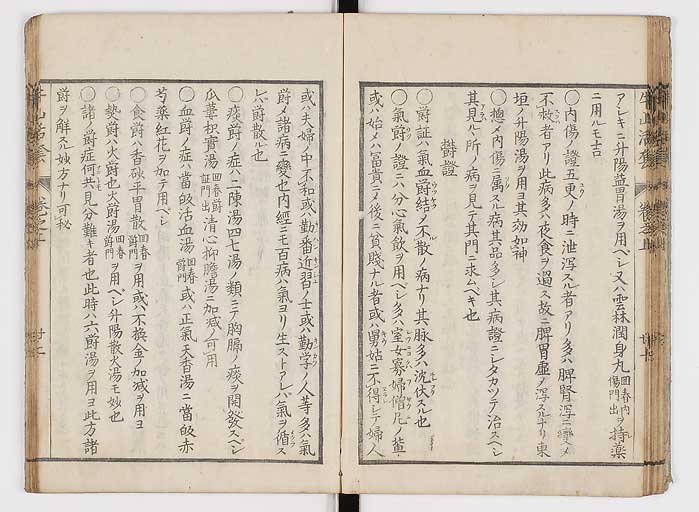 アレキニ升陽益胃湯ヲ用ベシ又ハ雲林潤身丸回春内傷門出ヲ持藥
ニ用ルモ吉
〇内傷ノ證五更ノ時ニ泄瀉スル者アリ多ハ脾腎瀉ニ變メ
不救者アリ此病多ハ夜食ヲ過ス故ニ脾胃虚ノ瀉スルナリ東
垣ノ升陽湯ヲ用ヨ其効如神
〇惣メ内傷ニ属スル病其品多シ其病證ニシタカツテ治スベシ
其見ル所ノ病ヲ見テ其門ニ求ムベキ也
欝證
〇欝証ハ氣血欝結ノ不散ノ病ナリ其脉多ハ沈伏スル也
〇氣欝ノ證ニハ分心氣飲ヲ用ベシ多ハ室女寡婦僧尼ノ輩
或ハ始メハ冨貴ニメ後ニ貧賤ナル者或ハ舅姑ニ不得シテ婦人
或ハ夫婦ノ中不和或ハ勤番近習ノ士或ハ勤学ノ人等多ハ氣
欝メ諸病ニ變也内經ニモ百病ハ氣ヨリ生ストアレバ氣ヲ循ス
欝散ル也
〇痰欝ノ症ハ二陳湯四七湯ノ類ニテ胸膈ノ痰ヲ開發スベシ
瓜蔞枳實湯回春欝證門出清心抑膽湯ニ加减メ可用
〇血欝ノ症ハ當皈活血湯回春欝門或ハ正氣天香湯ニ當皈赤
芍薬紅花ヲ加テ用ベシ
〇食欝ハ香砂平胃散回春欝門ヲ用或ハ不換金加减ヲ用ヨ
〇熱欝ハ火欝也火欝湯回春欝門ヲ用ベシ升陽散火湯モ妙也
〇諸ノ欝症何共見分難キ者也此時ハ六欝湯ヲ用ヨ此方諸
欝ヲ解ス妙方ナリ可秘